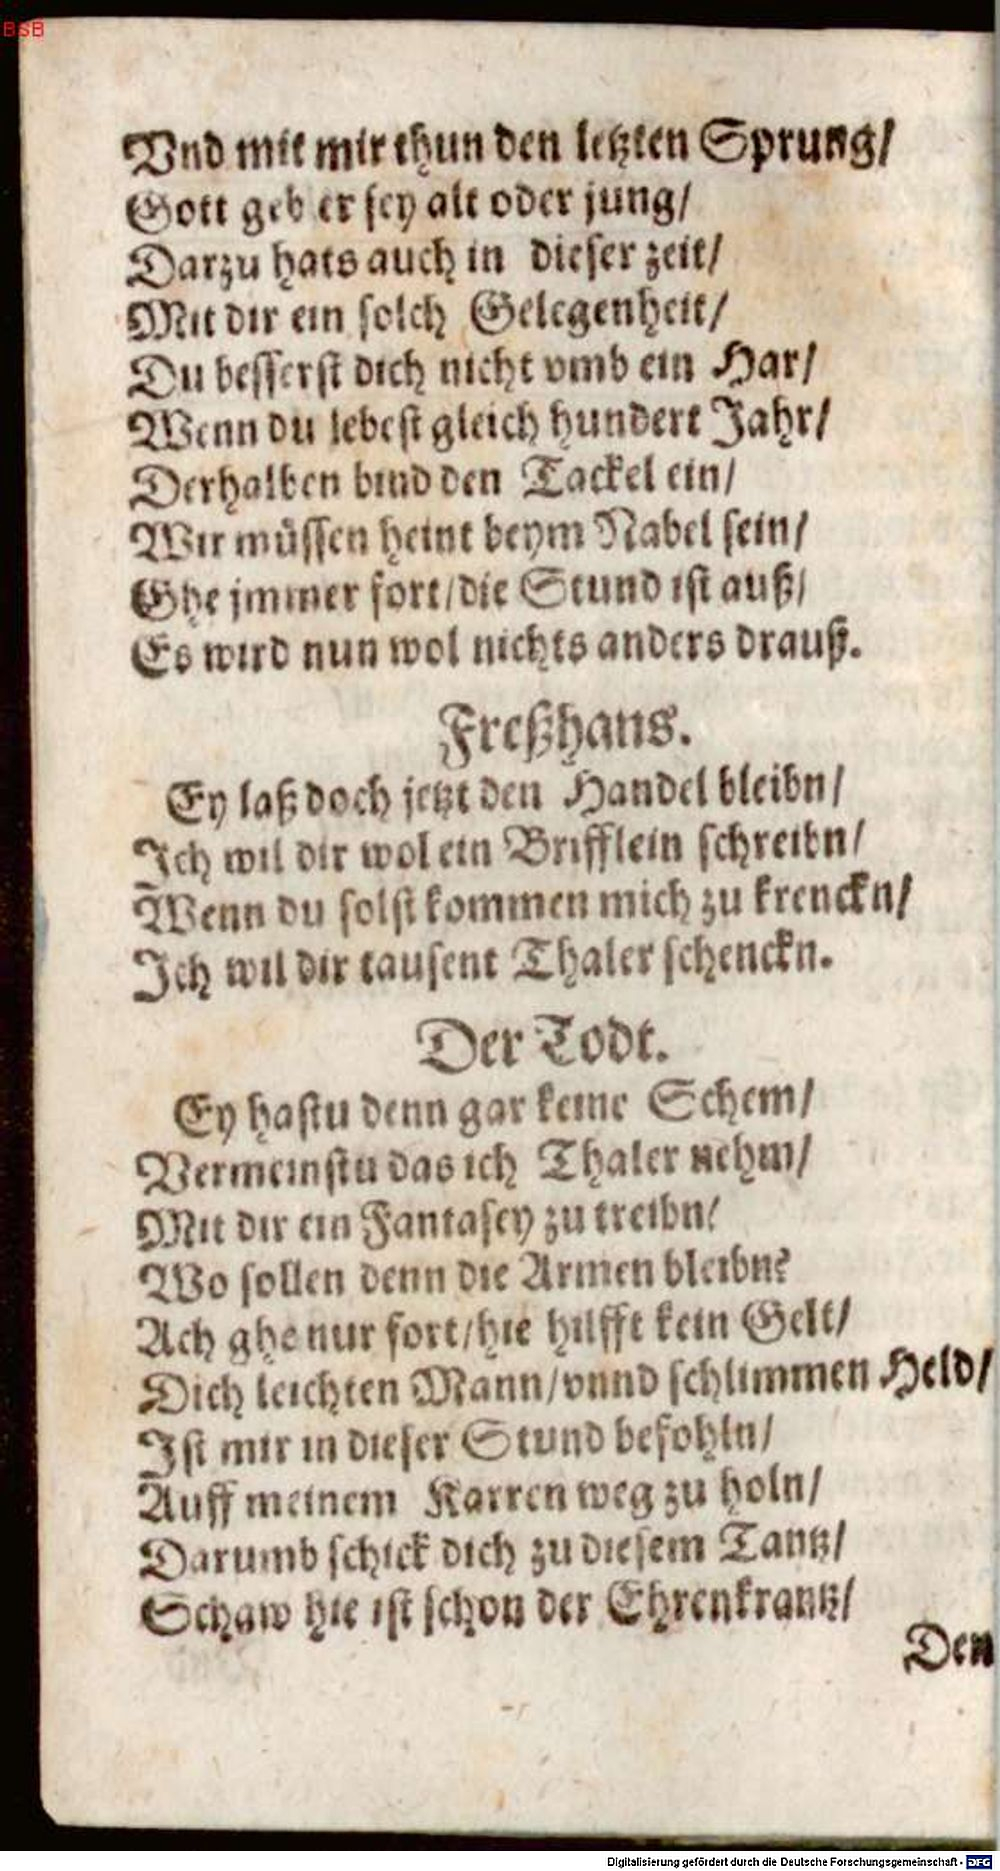 BSB
Vnd mit mir thun den letzten Sprung/
Gott geb er sey alt oder jung/
Darzu hats auch in dieser zeit/
Mit dir ein solch Gelegenheit/
Du besserst dich nicht vmb ein Har/
Wenn du lebest gleich hundert Jahr/
Derhalben bind den Tackel ein/
Wir müssen heint beym Nabel sein/
Ghe jmmer fort/die Stund ist auß/
Es wird nun wol nichts anders drauß.
Freßhans.
Ey laß doch jetzt den Handel bleibn/
Ich wil dir wol ein Brifflein schreibn/
Wenn du solst kommen mich zu krenckn/
Ich wil dir tausent Thaler schenckn.
Der Todt.
Ey hastu denn gar keine Schem/
Vermeinstu das ich Thaler nehm/
Mit dir ein Fantasey zu treibn/
Wo sollen denn die Armen bleibn?
Ach ghe nur fort/hie hilfft kein Gelt/
Dich leichten Mann/vnnd schlimmen Held/
Ist mir in dieser Stund befohln/
Auff meinem Karren weg zu holn/
Darumb schick dich zu diesem Tantz/
Schaw hie ist schon der Ehrenkrantz/
Den
Digitalisierung gefördert durch die Deutsche Forschungsgemeinschaft - DFG